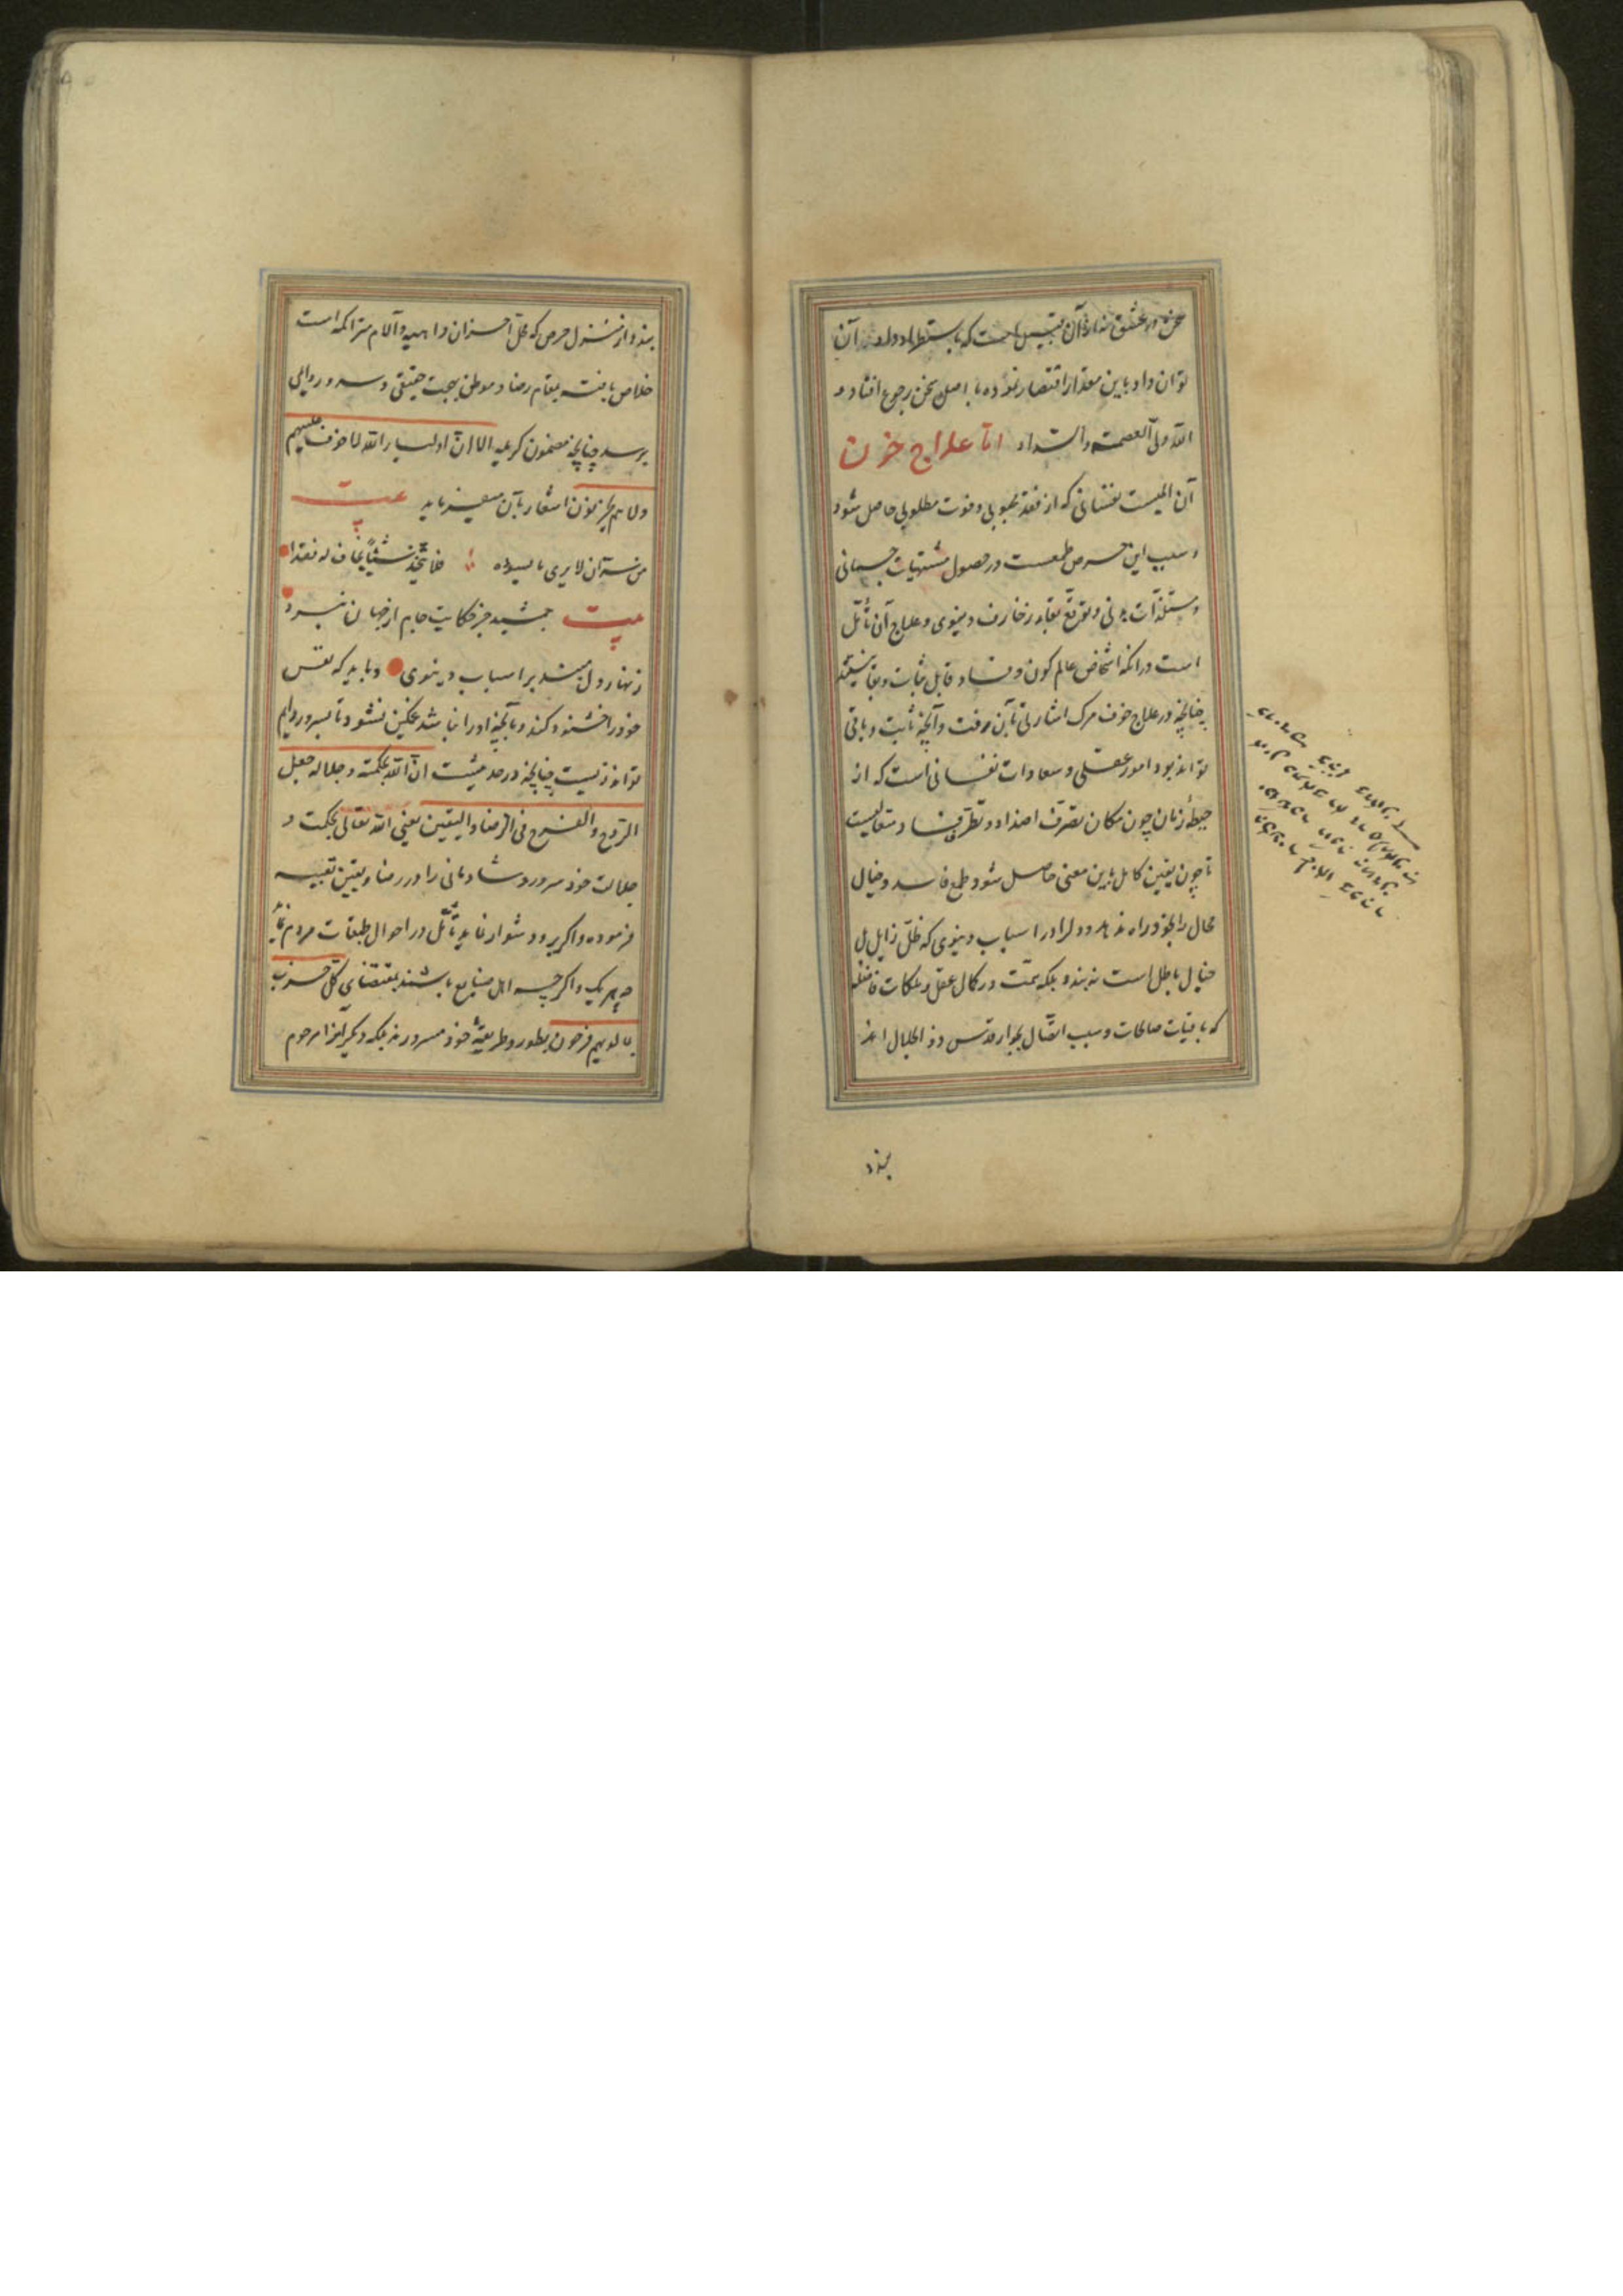 سخن در عشق نه از آن قبیل است که باستطراد داد آن
توان داد باین مقدار اقتصار نموده با اصل سخن رجوع افتاد و
الله ولی العصمة والسداد اما علاج حزن
آن المیست نفسانی که از فقد محبوبی و فوت مطلوبی حاصل شود
و سبب این حرص طمعست در حصول مشتهیات جسمانی
و مستلذات بدنی و توقع بقاء زخارف دنیوی و علاج آن تأمل
است در آنکه اشخاص عالم کون و فساد قابل ثبات و بقا نیستند
چنانچه در علاج خوف مرک اشارتی بآن رفت و آنچه ثابت و باقی
تواند بود امور عقلی و سعادات نفسانی است که از
حیطهٔ زمان چون مکان تصرف اضداد و تطرق فساد متعالیست
تا چون یقین کامل باین معنی حاصل شود طمع فاسد و خیال
محال را بخود راه ندهد و دل را در اسباب دنیوی که ظل زایل بل
خیال باطل است نه بندد بلکه همت در کمال عقل و ملکات فاضله
که باقیات صالحات و سبب اتصال بجوار قدس ذو الجلال اند
بندد
بندد و از منزل حرص که محل احزان داهیه و آلام متراکمه است
خلاص یافته بمقام رضا و موطن بهجت حقیقی و سرور دوامی
برسد چنانچه مضمون کریمه الا ان اولیاء الله لا خوف علیهم
ولا هم یحزنون اشعار بآن میفرماید بیت
من سره ان لا یری ما یسوءه فلا یتخذ شیئا یخاف له فقدا
بیت جمشید جز حکایت جام از جهان نبرد
زنهار دل مبند بر اسباب دنیوی و باید که نفس
خود را خشنود کند و بآنچه او را نباشد غمکین نشود تا بسرور دایم
تواند زیست چنانچه در حدیثست ان الله بحکمته و جلاله جعل
الروح والفرح فی الرضا والیقین یعنی الله تعالی بحکمت و
جلالت خود سرور و شادمانی را در رضا و یقین تعبیه
فرموده و اکر برو دشوار نماید تأمل در احوال طبقات مردم نماید
چه هر یک و اکر چه اهل صنایع باشند بمقتضای کل حزب
بما لدیهم فرحون بطور و طریقهٔ خود مسرورند بلکه دیکرانرا مرحوم